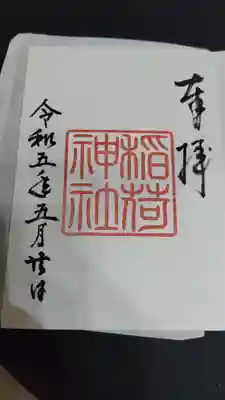 奉拝
稲荷
神社
令和五年五月廿日